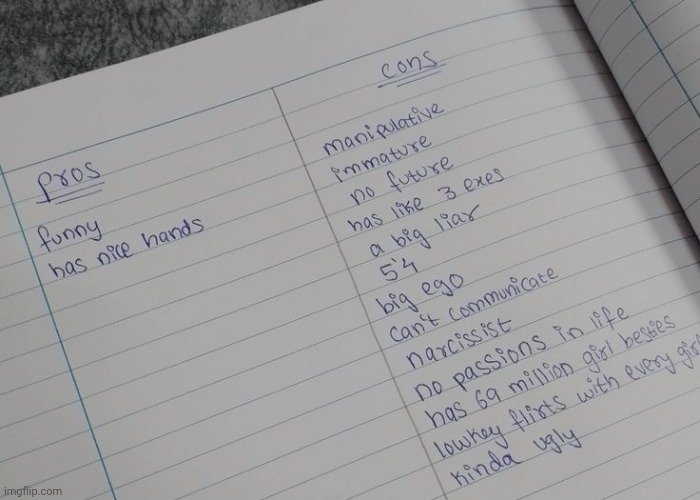 pros
funny
has nice hands
cons
manipulative
immature
no future
has like 3 exes
a big liar
5'4
big ego
can't communicate
narcissist
no passions in life
has 69 million girl besties
lowkey flirts with every girl
kinda ugly
imgflip.com